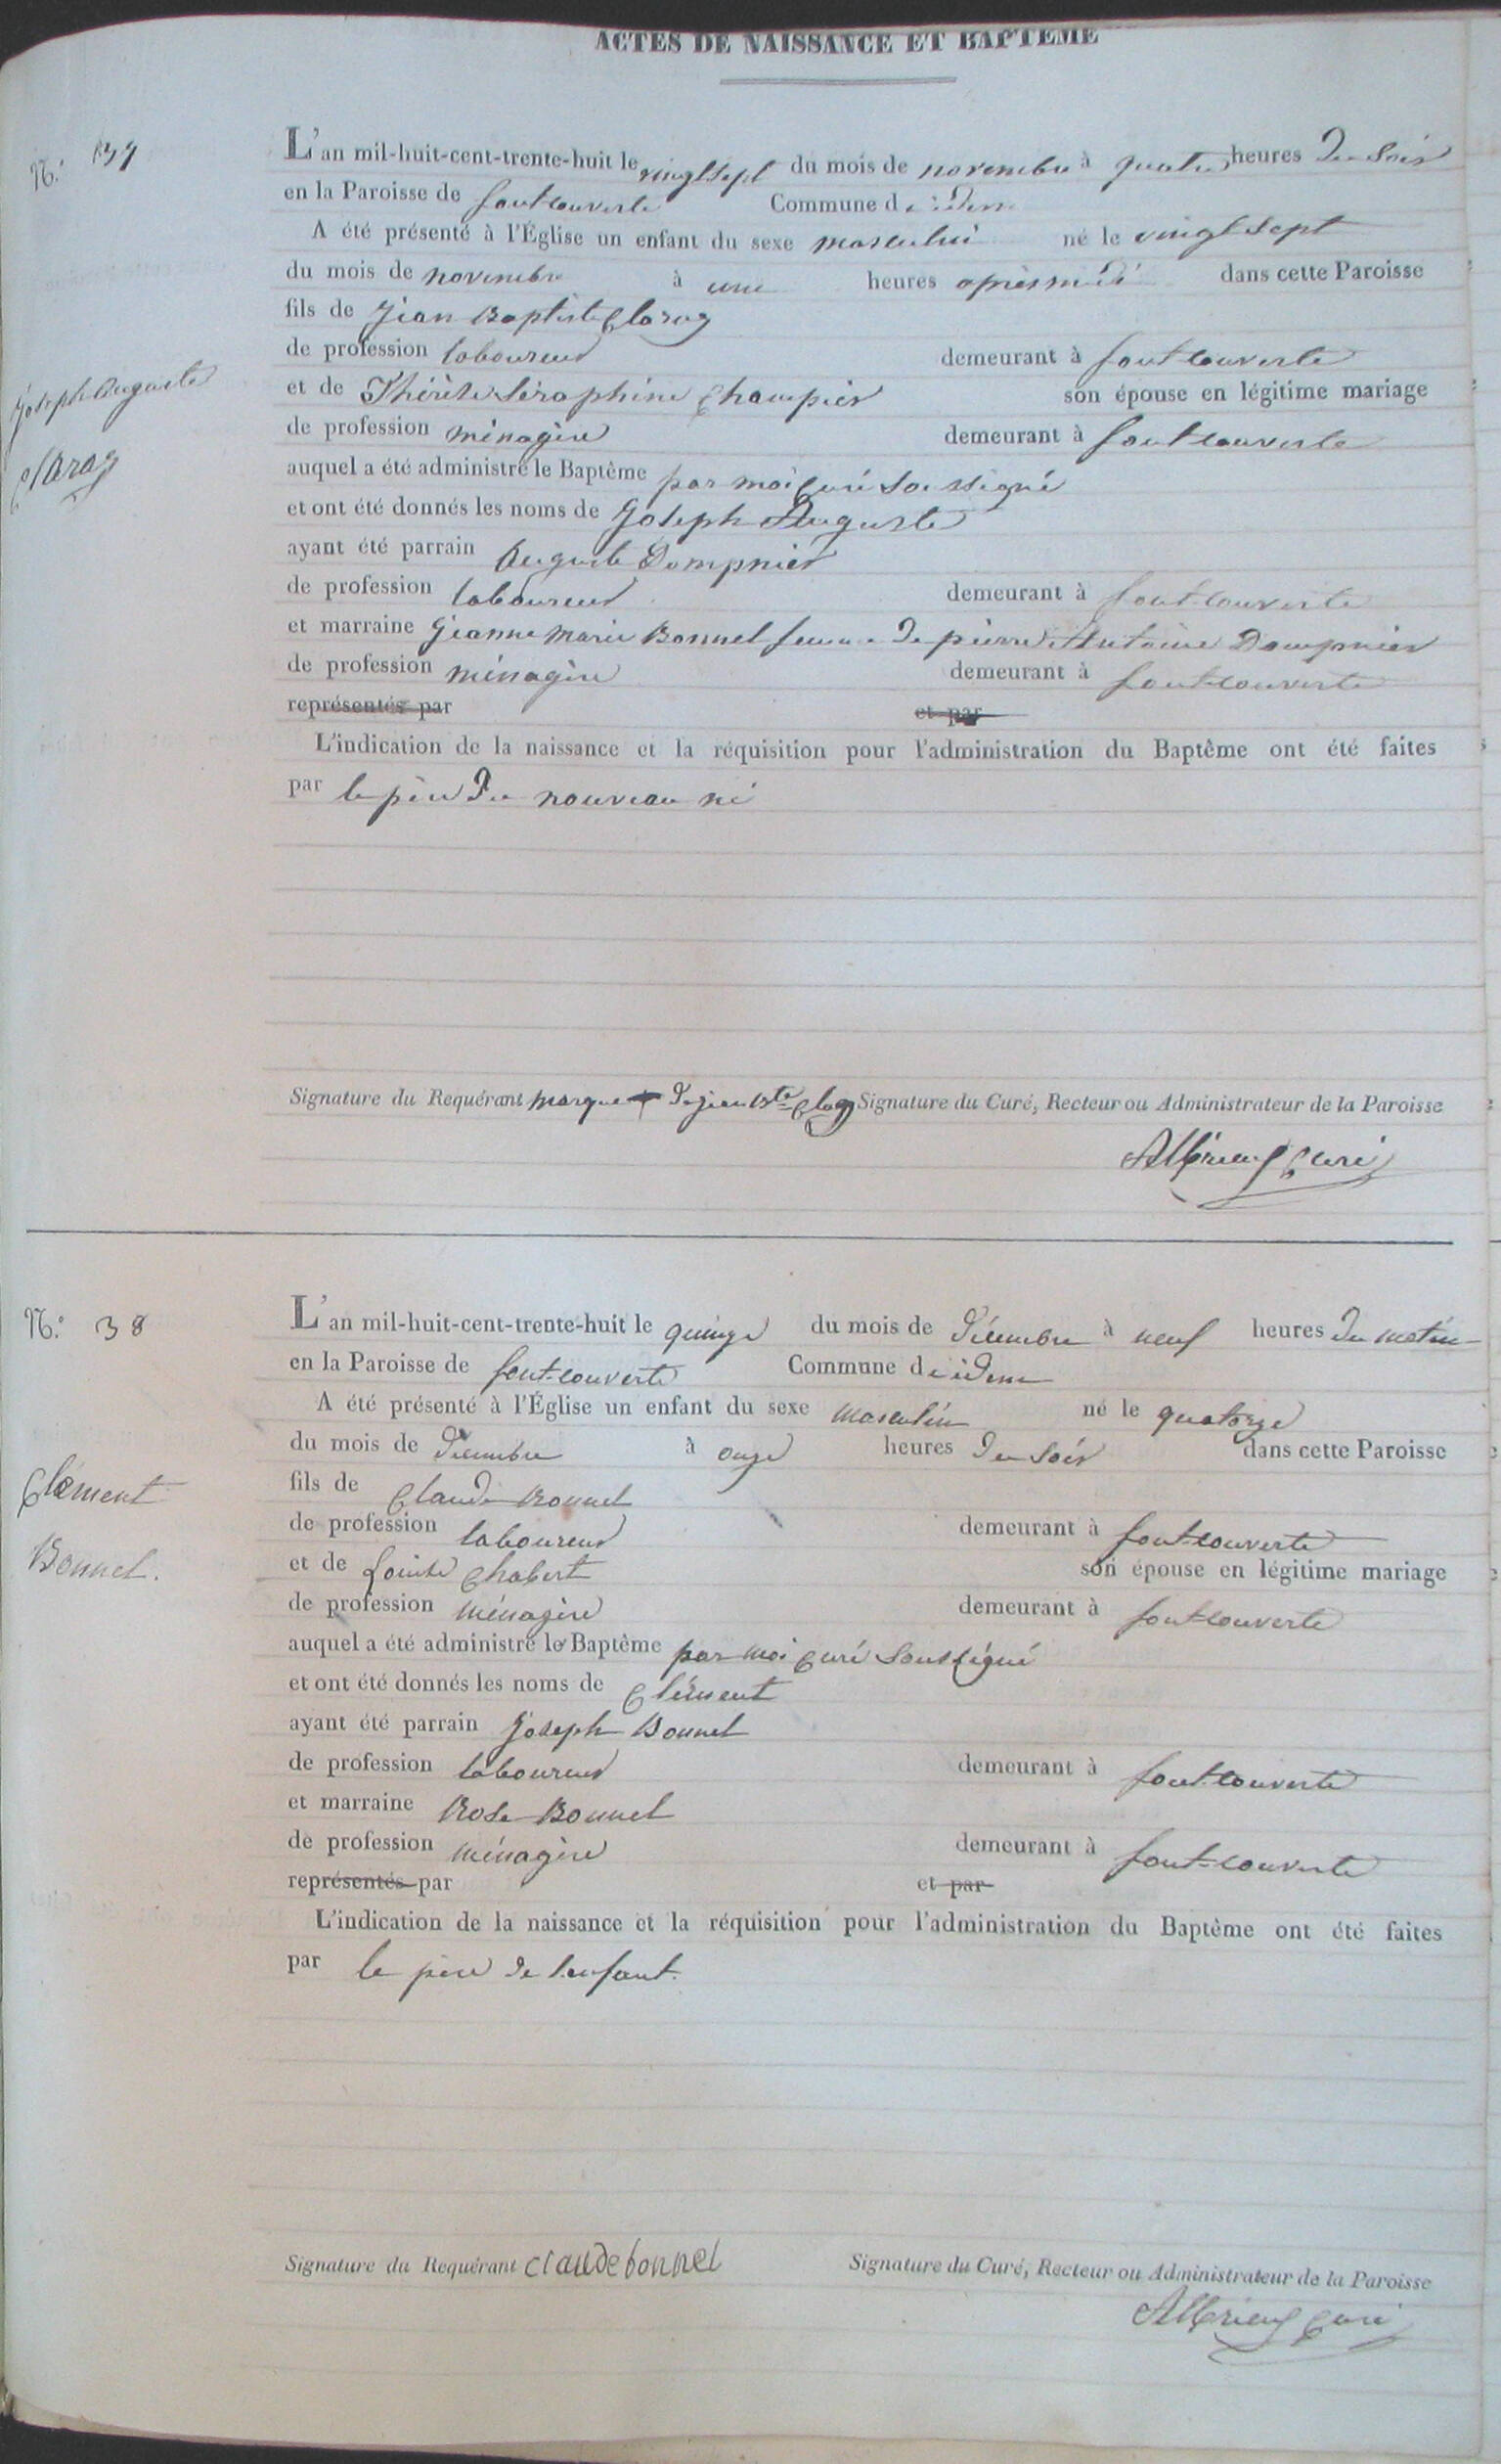 ACTES DE NAISSANCE ET BAPTÊME
N.° 37
L'an mil-huit-cent-trente-huit le vingt sept du mois de novembre à quatre heures du soir
en la Paroisse de fontcouverte Commune de idem
A été présenté à l'Église un enfant du sexe masculin né le vingt sept
du mois de novembre à une heures après midi dans cette Paroisse
fils de Jean Baptiste Claraz
de profession laboureur demeurant à fontcouverte
Joseph Auguste
et de Thérèse Séraphine Champier son épouse en légitime mariage
de profession ménagère demeurant à fontcouverte
Claraz
auquel a été administré le Baptême par moi Curé soussigné
et ont été donnés les noms de Joseph Auguste
ayant été parrain Auguste Dompnier
de profession laboureur demeurant à fontcouverte
et marraine Jeanne Marie Bonnel femme de pierre Antoine Dompnier
de profession ménagère demeurant à fontcouverte
représentés par et par
L'indication de la naissance et la réquisition pour l'administration du Baptême ont été faites
par le père du nouveau né
Signature du Requérant marque + de jean Bte Claraz Signature du Curé, Recteur ou Administrateur de la Paroisse
Albrieux Curé
N.° 38
L'an mil-huit-cent-trente-huit le quinze du mois de décembre à neuf heures du matin
en la Paroisse de font-couverte Commune de idem
A été présenté à l'Église un enfant du sexe masculin né le quatorze
du mois de décembre à onze heures du soir dans cette Paroisse
Clément
fils de Claude Bonnel
de profession laboureur demeurant à font-couverte
Bonnel.
et de Louise Chabert son épouse en légitime mariage
de profession ménagère demeurant à font-couverte
auquel a été administré le Baptême par moi Curé soussigné
et ont été donnés les noms de Clément
ayant été parrain Joseph Bonnel
de profession laboureur demeurant à font-couverte
et marraine Rose Bonnel
de profession ménagère demeurant à font-couverte
représentés par et par
L'indication de la naissance et la réquisition pour l'administration du Baptême ont été faites
par le père de l'enfant.
Signature du Requérant claude bonnel Signature du Curé, Recteur ou Administrateur de la Paroisse
Albrieux Curé